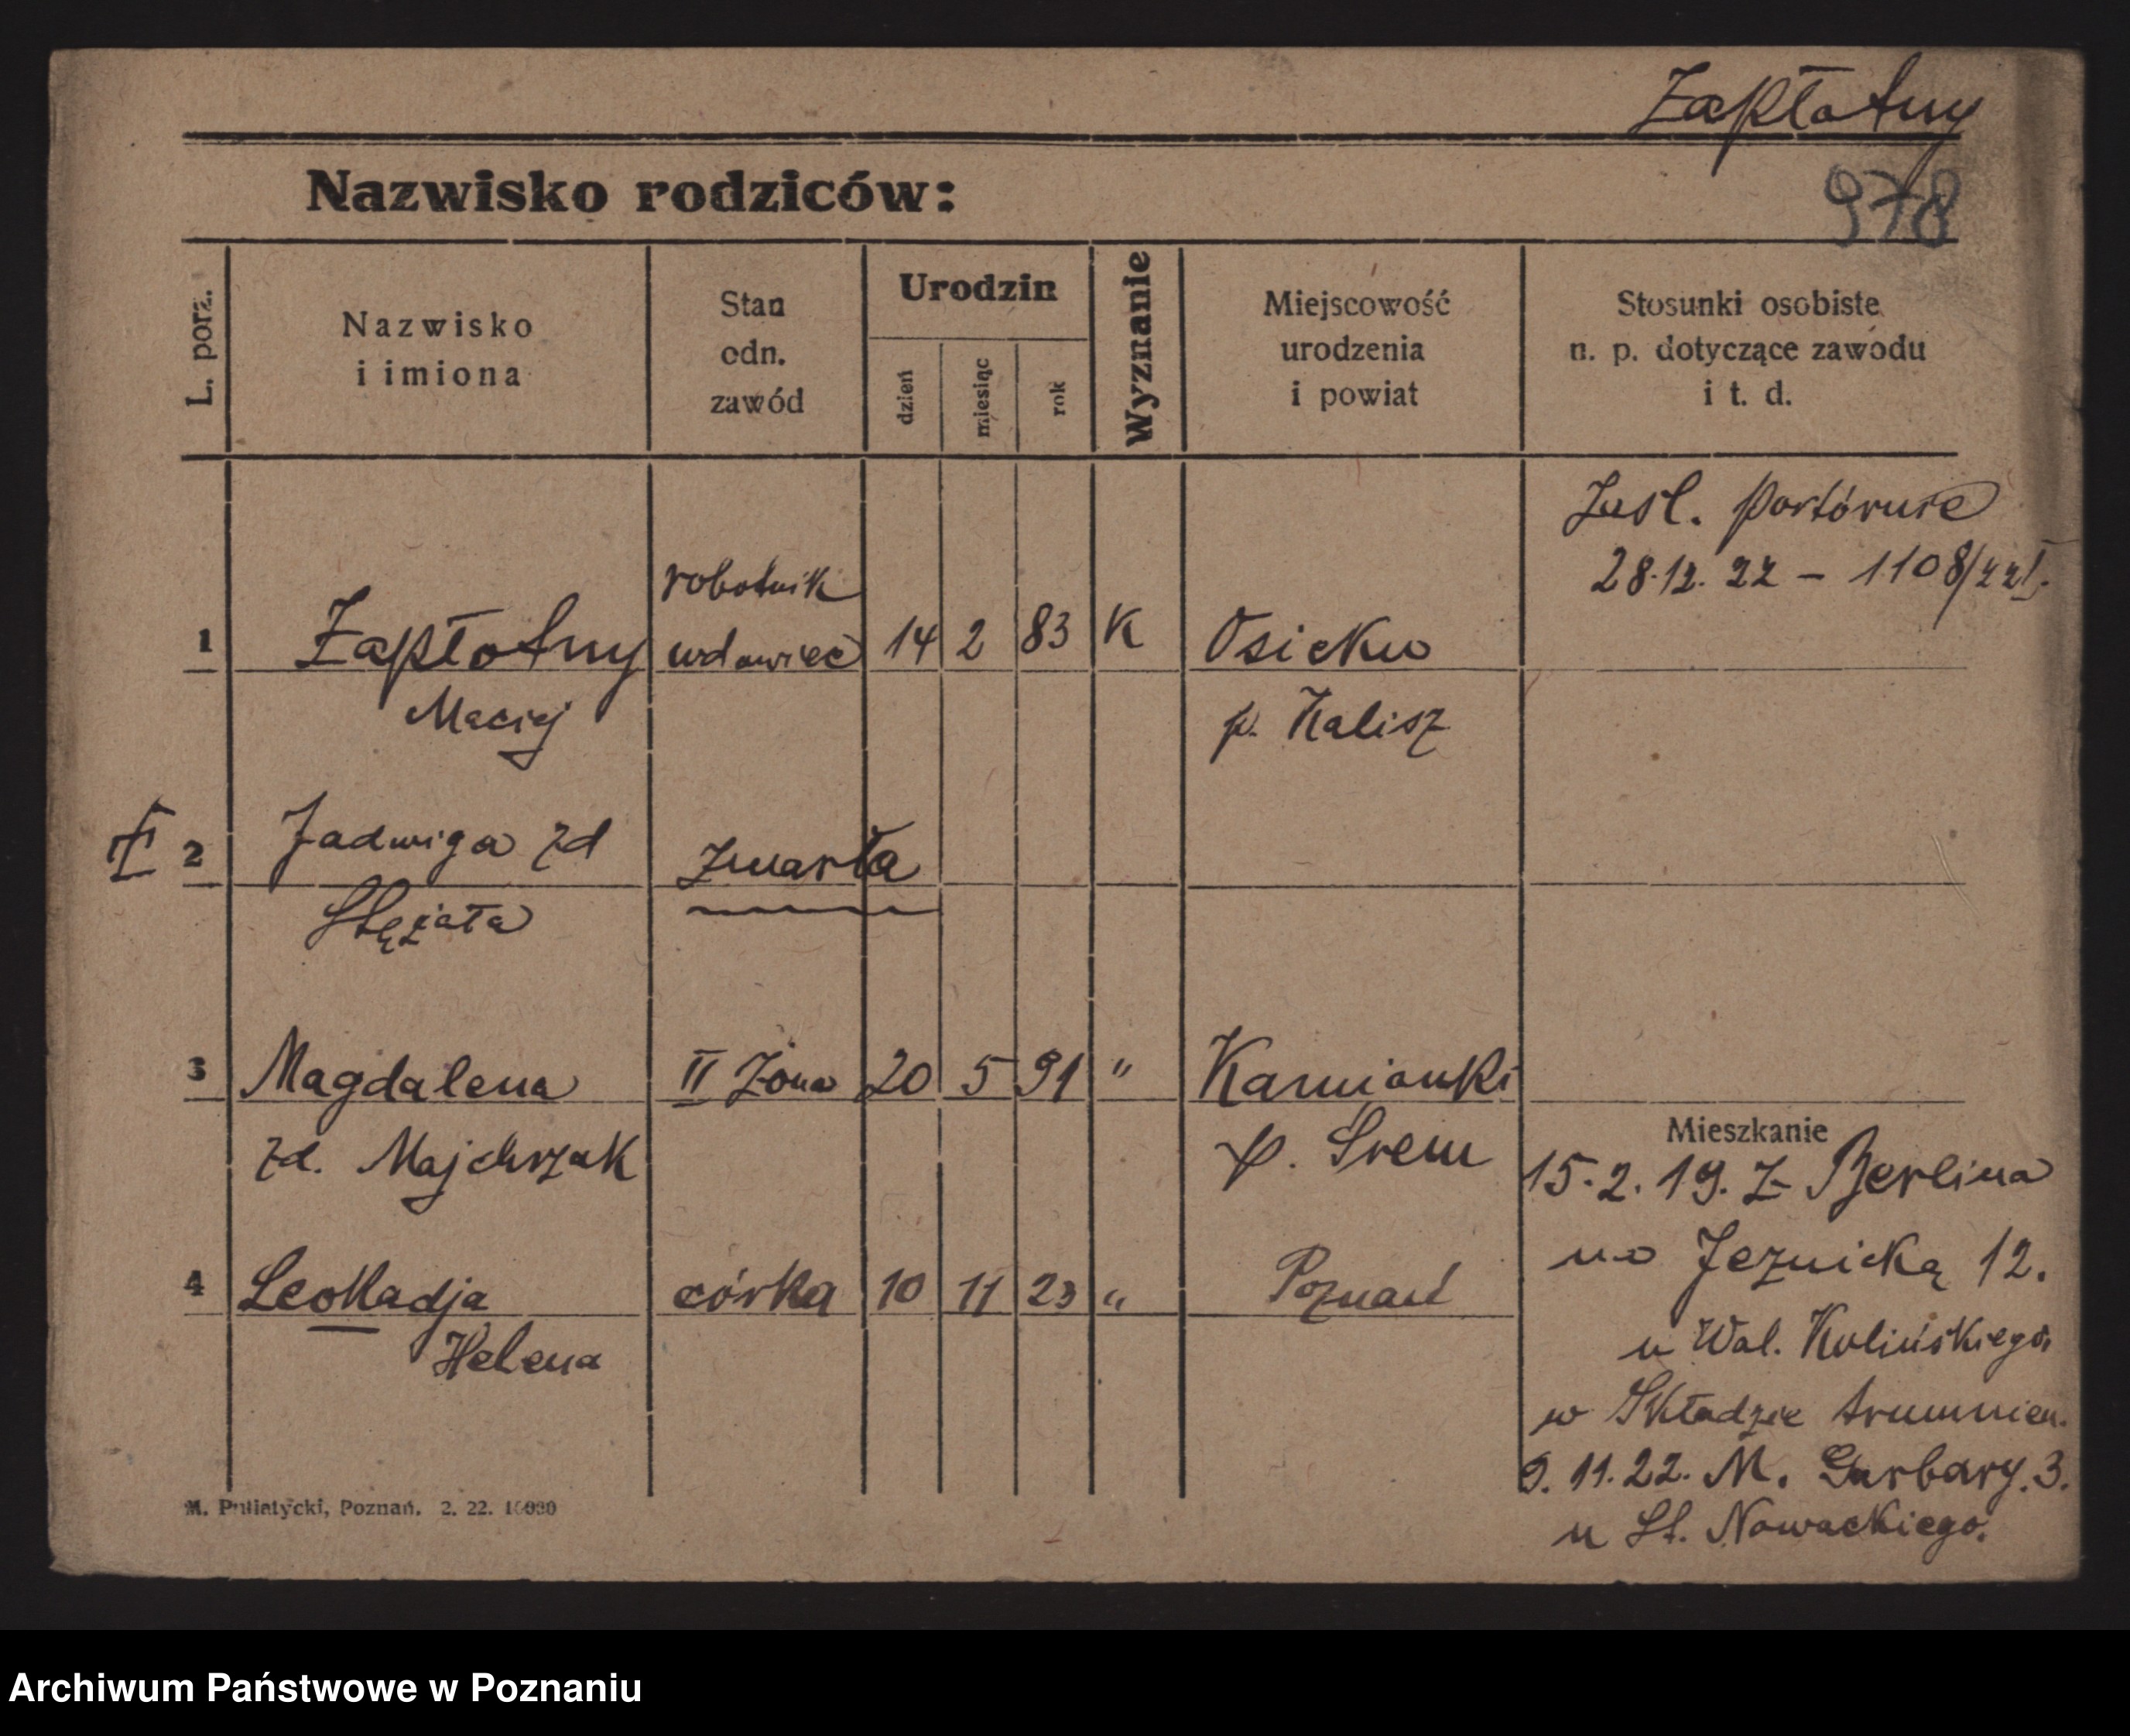 Zapłotny
Nazwisko rodziców:
978
L. porz.
Nazwisko
i imiona
Stan
odn.
zawód
Urodzin
dzień
miesiąc
rok
Wyznanie
Miejscowość
urodzenia
i powiat
Stosunki osobiste
n. p. dotyczące zawodu
i t. d.
28.12.22 – 1108/22
robotnik
1 Zapłotny wdowiec 14 2 83 K
Maciej
p. Kalisz
I 2 Jadwiga zd zmarła
Stężała
3 Magdalena II żona 20 5 91 " Kamionki
zd. Majchrzak p. Śrem
Mieszkanie
15.2.19. Z Berlina
na Jeznicką 12.
u Wal. Kolińskiego,
w Składzie trumnien.
9.11.22. M. Garbary. 3.
u St. Nowackiego.
4 Leokadja córka 10 11 23 " Poznań
Helena
M. Putiatycki, Poznań. 2. 22. 10000